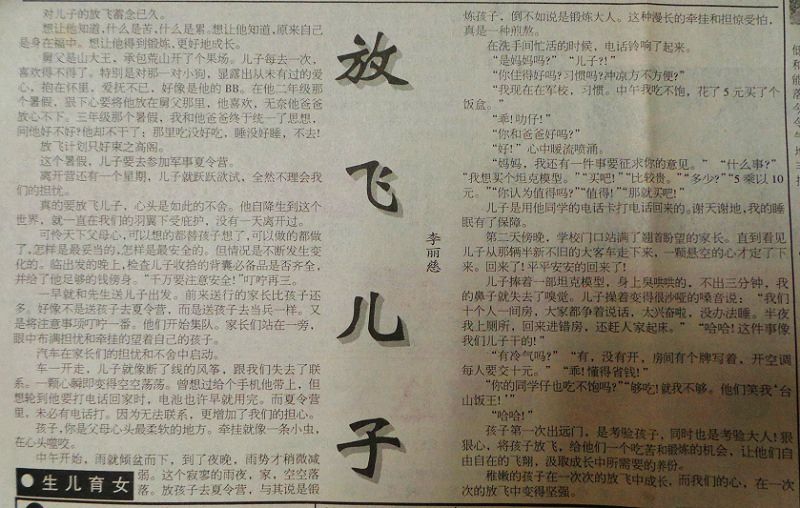 对儿子的放飞蓄念已久。
想让他知道，什么是苦，什么是累。想让他知道，原来自己
是身在福中。想让他得到锻炼，更好地成长。
舅父是山大王，承包荒山开了个果场。儿子每去一次，
喜欢得不得了。特别是对那一对小狗，显露出从未有过的爱
心，抱在怀里，爱抚不已，好像是他的BB。在他二年级那
个暑假，狠下心要将他放在舅父那里，他喜欢，无奈他爸爸
放心不下。三年级那个暑假，我和他爸爸终于统一了思想，
问他好不好？他却不干了：那里吃没好吃，睡没好睡，不去！
放飞计划只好束之高阁。
这个暑假，儿子要去参加军事夏令营。
离开营还有一个星期，儿子就跃跃欲试，全然不理会我
们的担忧。
真的要放飞儿子，心头是如此的不舍。他自降生到这个
世界，就一直在我们的羽翼下受庇护，没有一天离开过。
可怜天下父母心，可以想的都替孩子想了，可以做的都做
了，怎样是最妥当的，怎样是最安全的。但情况是不断发生变
化的。临出发的晚上，检查儿子收拾的背囊必备品是否齐全，
并给了他足够的钱傍身。“千万要注意安全！”叮咛再三。
一早就和先生送儿子出发。前来送行的家长比孩子还
多。好像不是送孩子去夏令营，而是送孩子去当兵一样。又
是将注意事项叮咛一番。他们开始集队。家长们站在一旁，
眼中布满担忧和牵挂的望着自己的孩子。
汽车在家长们的担忧和不舍中启动。
车一开走，儿子就像断了线的风筝，跟我们失去了联
系。一颗心瞬即变得空空荡荡。曾想过给个手机他带上，但
想轮到他要打电话回家时，电池也许早就用完。而夏令营
里，未必有电话打。因为无法联系，更增加了我们的担心。
孩子，你是父母心头最柔软的地方。牵挂就像一条小虫，
在心头噬咬。
中午开始，雨就倾盆而下，到了夜晚，雨势才稍微减
弱。这个寂寥的雨夜，家，空空落
落。放孩子去夏令营，与其说是锻
生儿育女
放飞儿子
李丽慈
炼孩子，倒不如说是锻炼大人。这种漫长的牵挂和担惊受怕，
真是一种煎熬。
在洗手间忙活的时候，电话铃响了起来。
“是妈妈吗？”“儿子？！”
“你住得好吗？习惯吗？冲凉方不方便？”
“我现在在军校，习惯。中午我吃不饱，花了5元买了个
饭盒。”
“乖！叻仔！”
“你和爸爸好吗？”
“好！”心中暖流喷涌。
“妈妈，我还有一件事要征求你的意见。”“什么事？”
“我想买个坦克模型。”“买吧！”“比较贵。”“多少？”“5乘以10
元。”“你认为值得吗？”“值得！”“那就买吧！”
儿子是用他同学的电话卡打电话回来的。谢天谢地，我的睡
眠有了保障。
第二天傍晚，学校门口站满了翘首盼望的家长。直到看见
儿子从那辆半新不旧的大客车走下来，一颗悬空的心才定了下
来。回来了！平平安安的回来了！
儿子捧着一部坦克模型，身上臭哄哄的，不出三分钟，我
的鼻子就失去了嗅觉。儿子操着变得很沙哑的嗓音说：“我们
十个人一间房，大家都争着说话，太兴奋啦，没办法睡。半夜
我上厕所，回来进错房，还赶人家起床。”“哈哈！这件事像
我们儿子干的！”
“有冷气吗？”“有，没有开，房间有个牌写着，开空调
每人要交十元。”“乖！懂得省钱！”
“你的同学仔也吃不饱吗？”“够吃！就我不够。他们笑我‘台
山饭王！’”
“哈哈！”
孩子第一次出远门，是考验孩子，同时也是考验大人！狠
狠心，将孩子放飞，给他们一个吃苦和锻炼的机会，让他们自
由自在的飞翔，汲取成长中所需要的养份。
稚嫩的孩子在一次次的放飞中成长，而我们的心，在一次
次的放飞中变得坚强。